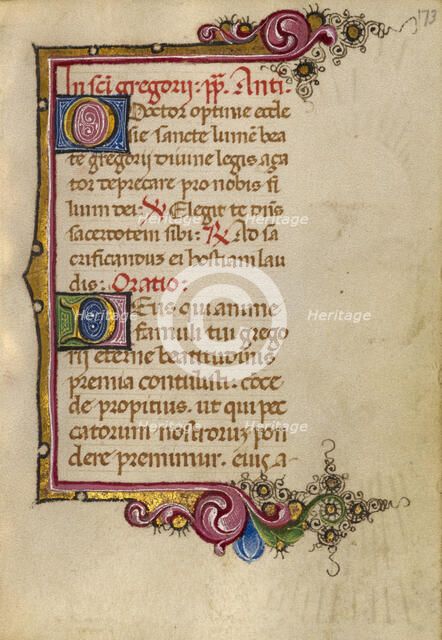 173
In sc̄i gregorij: pp̄. Anti.
O Doctor optime eccle
sie sancte lumē bea
te gregorij diuine legis ama
tor deprecare pro nobis fi
lium dei. V Elegit te dn̄s
sacerdotem sibi: R Ad sa
crificandū ei hostiam lau
dis: Oratio:
Deus qui anime
famuli tui grego
rij eterne beatitudinis
premia contulisti. cōce
de propitius. ut qui pec
catorum nostroruꝫ pon
dere premimur. eius a
Heritage
Heritage
Heritage
Heritage
Heritage
Heritage